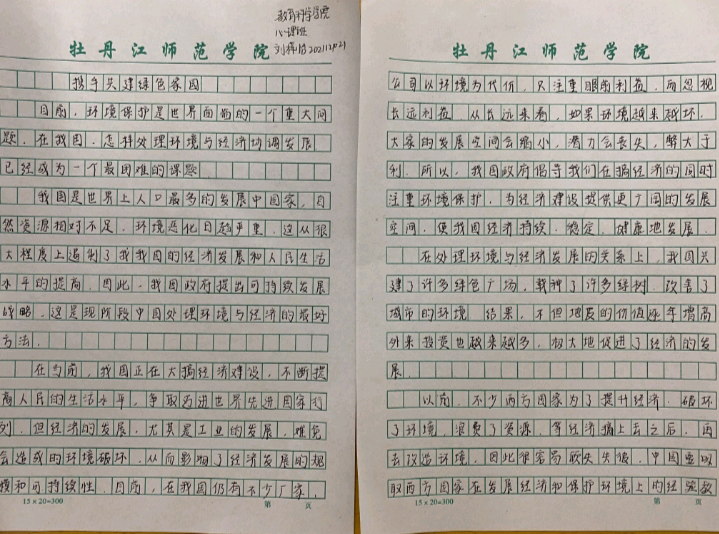 教育科学学院
牡丹江师范学院
携手共建绿色家园
目前，环境保护是世界面临的一个重大问
题。在我国，怎样处理环境与经济协调发展
已经成为一个最困难的课题
我国是世界上人口最多的发展中国家，自
然资源相对不足，环境恶化日趋严重，这从很
大程度上遏制了我国的经济发展和人民生活
水平的提高。因此，我国政府提出可持续发展
战略，这是现阶段中国处理环境与经济的最好
方法.
在当前，我国正在大搞经济建设，不断提
高人民的生活水平，争取迈进世界先进国家行
列，但经济的发展，尤其是工业的发展，难免
会造成的环境破坏，从而影响了经济发展的规
模和可持续性，目前，在我国仍有不少厂家，
15×20=300
第 页
牡丹江师范学院
公司以环境为代价，只注重眼前利益，而忽视
长远利益。从长远来看，如果环境越来越坏，
大家的发展空间会缩小，潜力会丧失，弊大于
利。所以，我国政府倡导我们在搞经济的同时
注重环境保护，为经济建设提供更广阔的发展
空间，使我国经济持续、稳定、健康地发展.
在处理环境与经济发展的关系上，我国兴
建了许多绿色广场，栽种了许多绿树，改善了
城市的环境 结果，不但地段的价值逐年增高
外来投资也越来越多，极大地促进了经济的发
展.
以前，不少西方国家为了提升经济，破坏
了环境，浪费了资源，等经济搞上去之后，再
去改造环境，因此很容易顾失失衡，中国要吸
取西方国家在发展经济和保护环境上的经验教
15×20=300
第 页